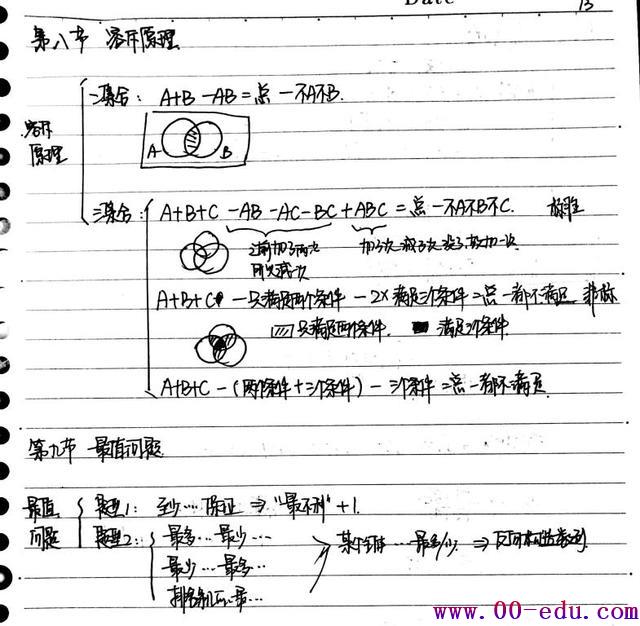 Date 13
第八节 容斥原理
容斥原理
二集合: A+B -AB = 总 - 不A不B.
A B
三集合: A+B+C -AB -AC -BC + ABC = 总 - 不A不B不C. 标准
之前加了两次 加了3次 减了3次 没了 故加一次
所以减一次
A+B+C - 只满足两个条件 - 2× 满足三个条件 = 总 - 都不满足 非标
只满足两个条件 满足三个条件
A+B+C - (两个条件 + 三个条件) - 三个条件 = 总 - 都不满足
第九节 最值问题
最值问题
题型1: 至少…保证 ⇒ "最不利" +1.
题型2: 最多…最少…
最少…最多…
排名第…最…
某个…最多/少. ⇒ 反向构造数列
www.00-edu.com